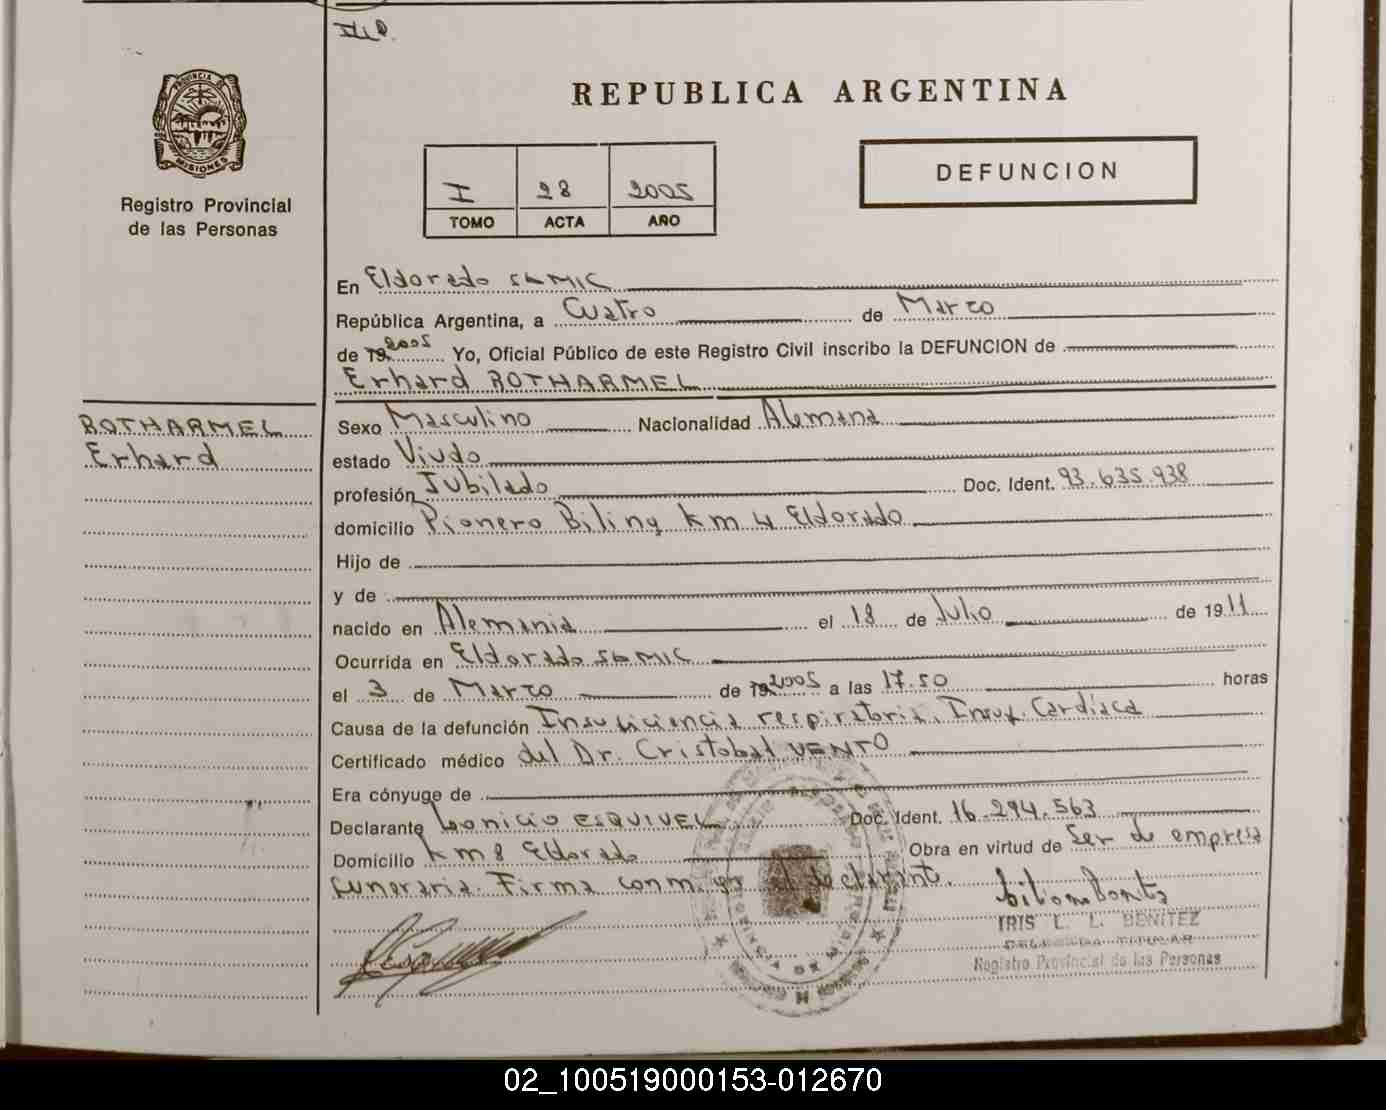 REPUBLICA ARGENTINA
PROVINCIA DE
MISIONES
Registro Provincial
de las Personas
I 28 2005
TOMO ACTA AÑO
DEFUNCION
En Eldorado SAMIC
República Argentina, a Cuatro de Marzo
de 19 2005 Yo, Oficial Público de este Registro Civil inscribo la DEFUNCION de
Erhard ROTHARMEL
ROTHARMEL
Erhard
Sexo Masculino Nacionalidad Alemana
estado Viudo
profesión Jubilado Doc. Ident. 93.635.938
domicilio Pionero Biling km 4 Eldorado
Hijo de
y de
nacido en Alemania el 18 de Julio de 1911
Ocurrida en Eldorado SAMIC
el 3 de Marzo de 19 2005 a las 17.50 horas
Causa de la defunción Insuficiencia respiratoria. Insuf. Cardíaca
Certificado médico del Dr. Cristobal VENTO
Era cónyuge de
Declarante ESQUIVEL Doc. Ident. 16.294.563
Domicilio km 8 Eldorado Obra en virtud de Ser de empresa
funeraria. Firma conmigo el declarante.
IRIS L. L. BENITEZ
DELEGADA TITULAR
Registro Provincial de las Personas
02_100519000153-012670